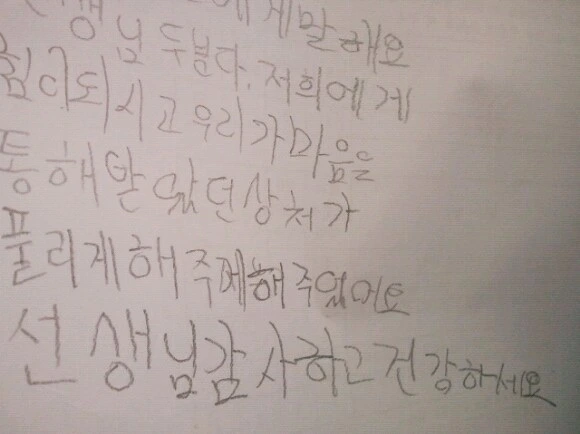 에게말해요
생님 두분다. 저희에게
힘이되시고 우리가마음을
통해받았던상처가
풀리게해주께해주었어요
선생님감사하고건강하세요